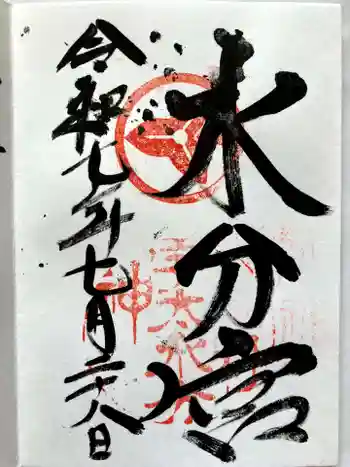 水分宮
令和七年七月二十八日